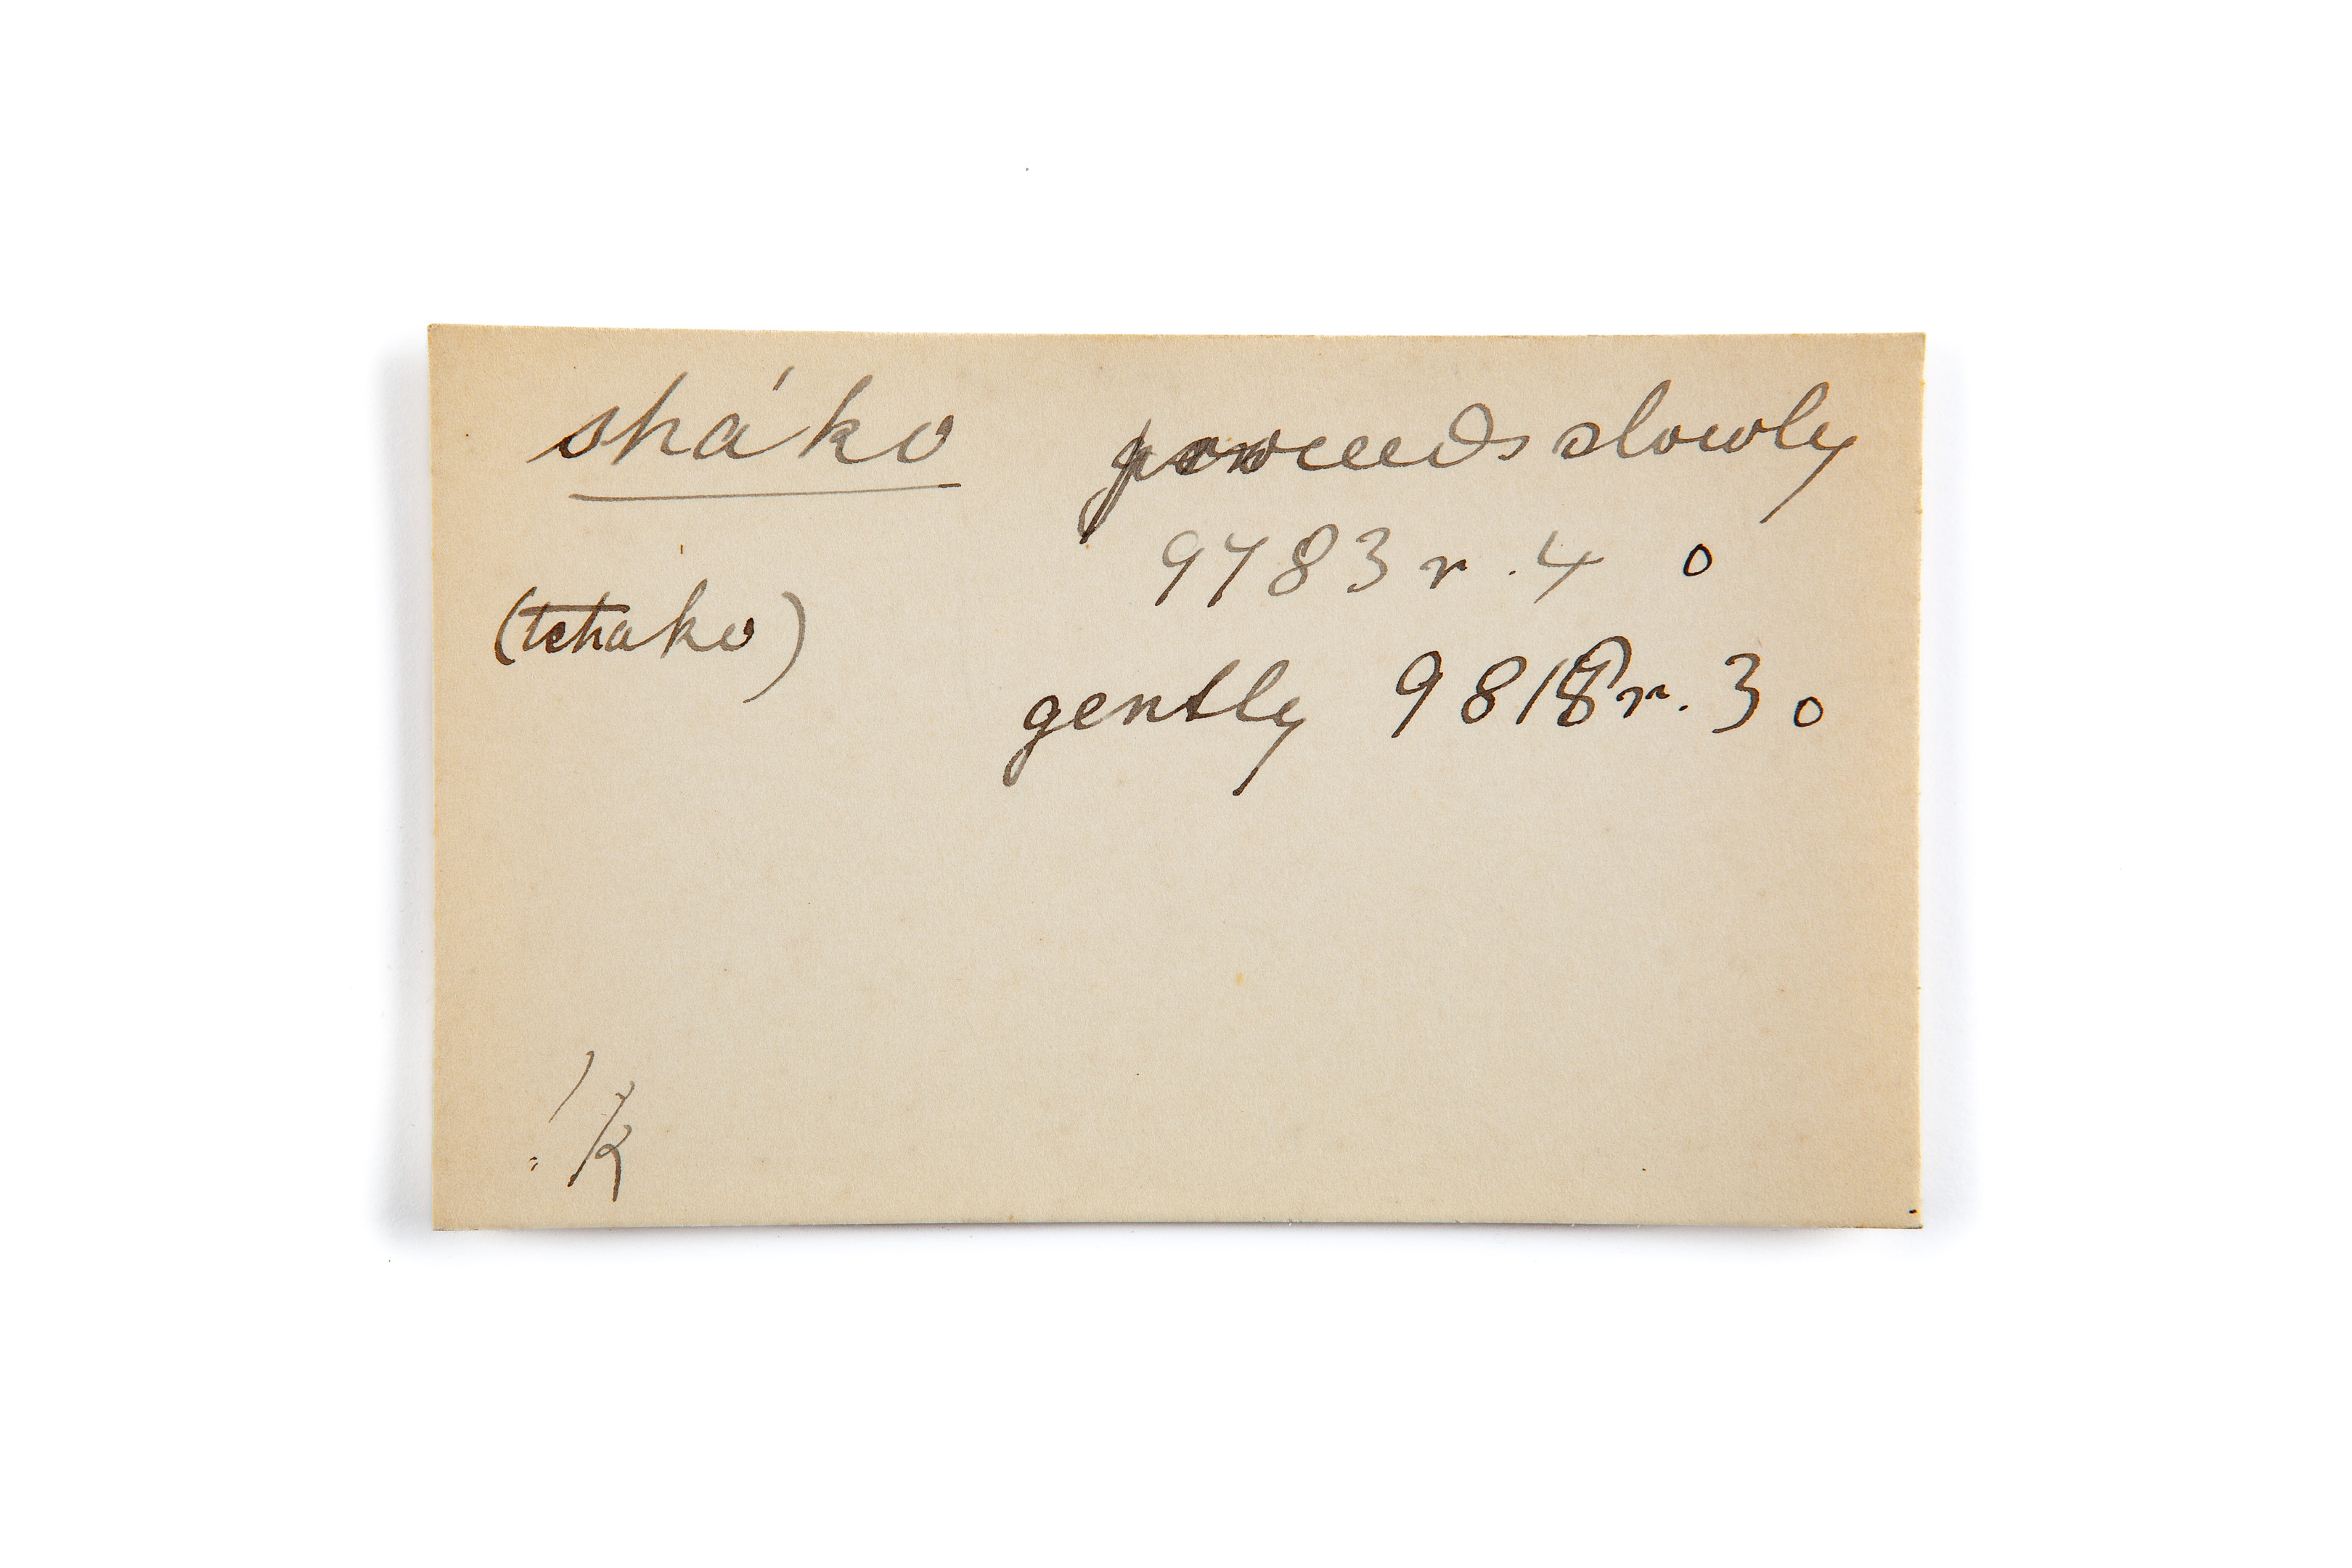 sha'ko proceeds slowly
9783 r. 4 o
(tchako)
gently 9818 r. 3 o
! k